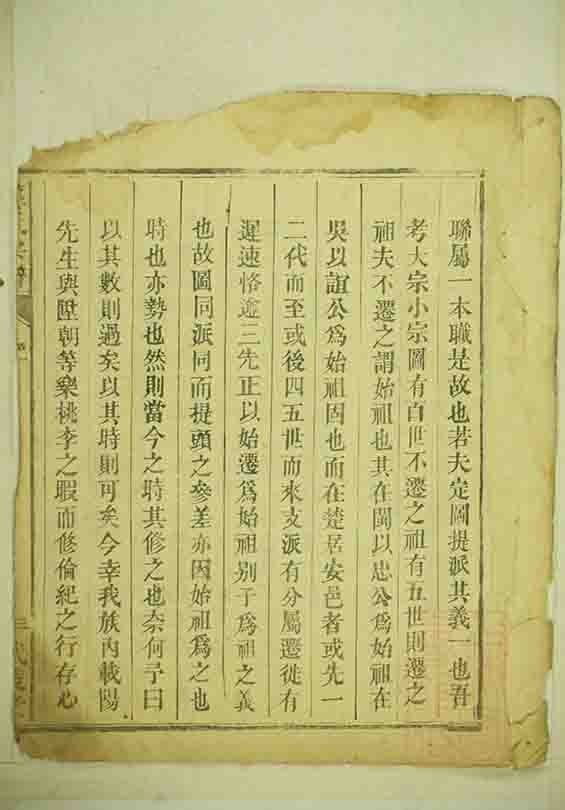 聯屬一本職是故也若夫定圖提派其義一也吾
考大宗小宗圖有百世不遷之祖有五世則遷之
祖夫不遷之謂始祖也其在閩以忠公爲始祖在
吳以誼公爲始祖因也而在楚居安邑者或先一
二代而至或後四五世而來支派有分屬遷徙有
遲速恪遵三先正以始遷爲始祖別子爲祖之義
也故圖同派同而提頭之參差亦因始祖爲之也
時也亦勢也然則當今之時其修之也奈何予曰
以其數則過矣以其時則可矣今幸我族內載陽
先生與陞朝等樂桃李之暇而修倫紀之行存心